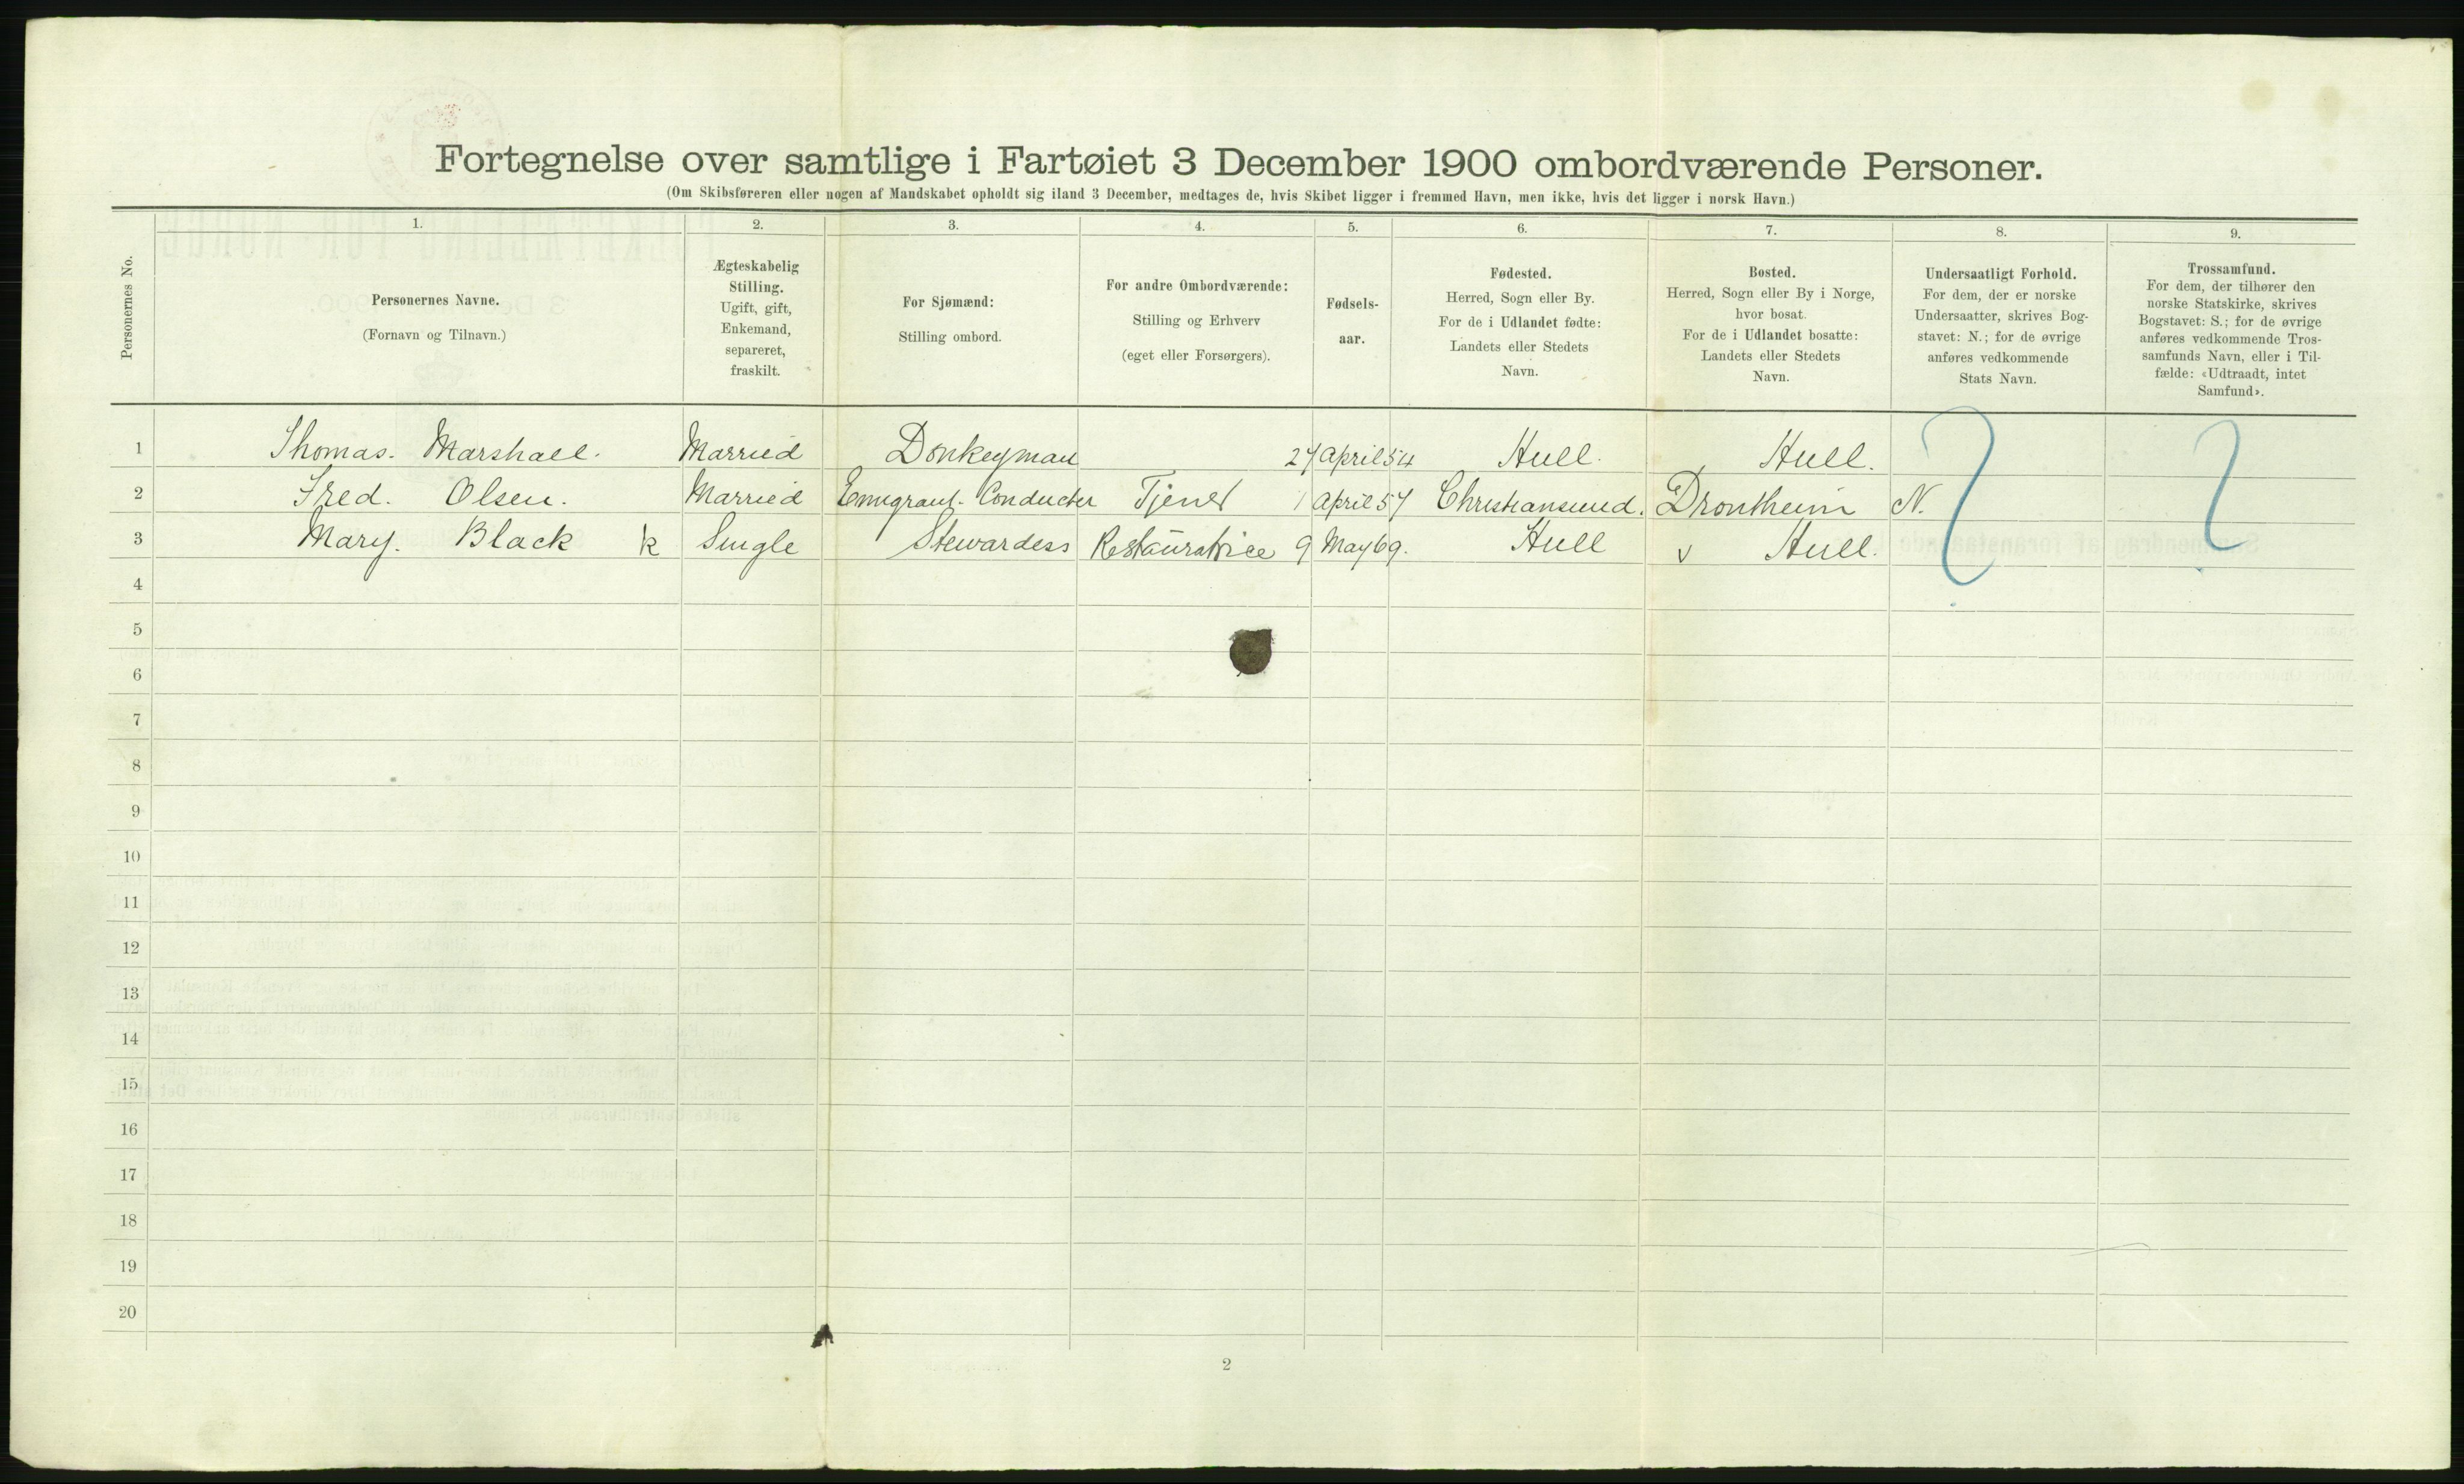 Fortegnelse over samtlige i Fartøiet 3 December 1900 ombordværende Personer.
(Om Skibsføreren eller nogen af Mandskabet opholdt sig iland 3 December, medtages de, hvis Skibet ligger i fremmed Havn, men ikke, hvis det ligger i norsk Havn.)
Personernes No.
1.
Personernes Navne.
(Fornavn og Tilnavn.)
2.
Ægteskabelig
Stilling.
Ugift, gift,
Enkemand,
separeret,
fraskilt.
3.
For Sjømænd:
Stilling ombord.
4.
For andre Ombordværende:
Stilling og Erhverv
(eget eller Forsørgers).
5.
Fødsels-
aar.
6.
Fødested.
Herred, Sogn eller By.
For de i Udlandet fødte:
Landets eller Stedets
Navn.
7.
Bosted.
Herred, Sogn eller By i Norge,
hvor bosat.
For de i Udlandet bosatte:
Landets eller Stedets
Navn.
8.
Undersaatligt Forhold.
For dem, der er norske
Undersaatter, skrives Bog-
stavet: N.; for de øvrige
anføres vedkommende
Stats Navn.
9.
Trossamfund.
For dem, der tilhører den
norske Statskirke, skrives
Bogstavet: S.; for de øvrige
anføres vedkommende Tros-
samfunds Navn, eller i Til-
fælde: «Udtraadt, intet
Samfund».
1 Thomas. Marshall. Married Donkeyman 27 April 54 Hull. Hull. ?  ?
2 Fred. Olsen. Married Emigrant. Conducter Tjener 1 April 57 Christiansund. Drontheim N.
3 Mary. Black k Single Stewardess Restauratrice 9 May 69. Hull v Hull.
4
5
6
7
8
9
10
11
12
13
14
15
16
17
18
19
20
2